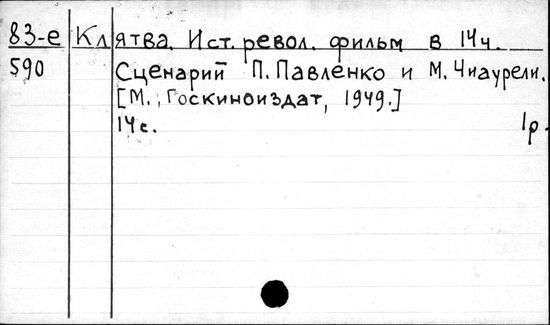 83-е Клятва. Ист. револ. фильм в 14ч.
590 Сценарий П. Павленко и М. Чиаурели.
[М., Госкиноиздат, 1949.]
14с. 1р.